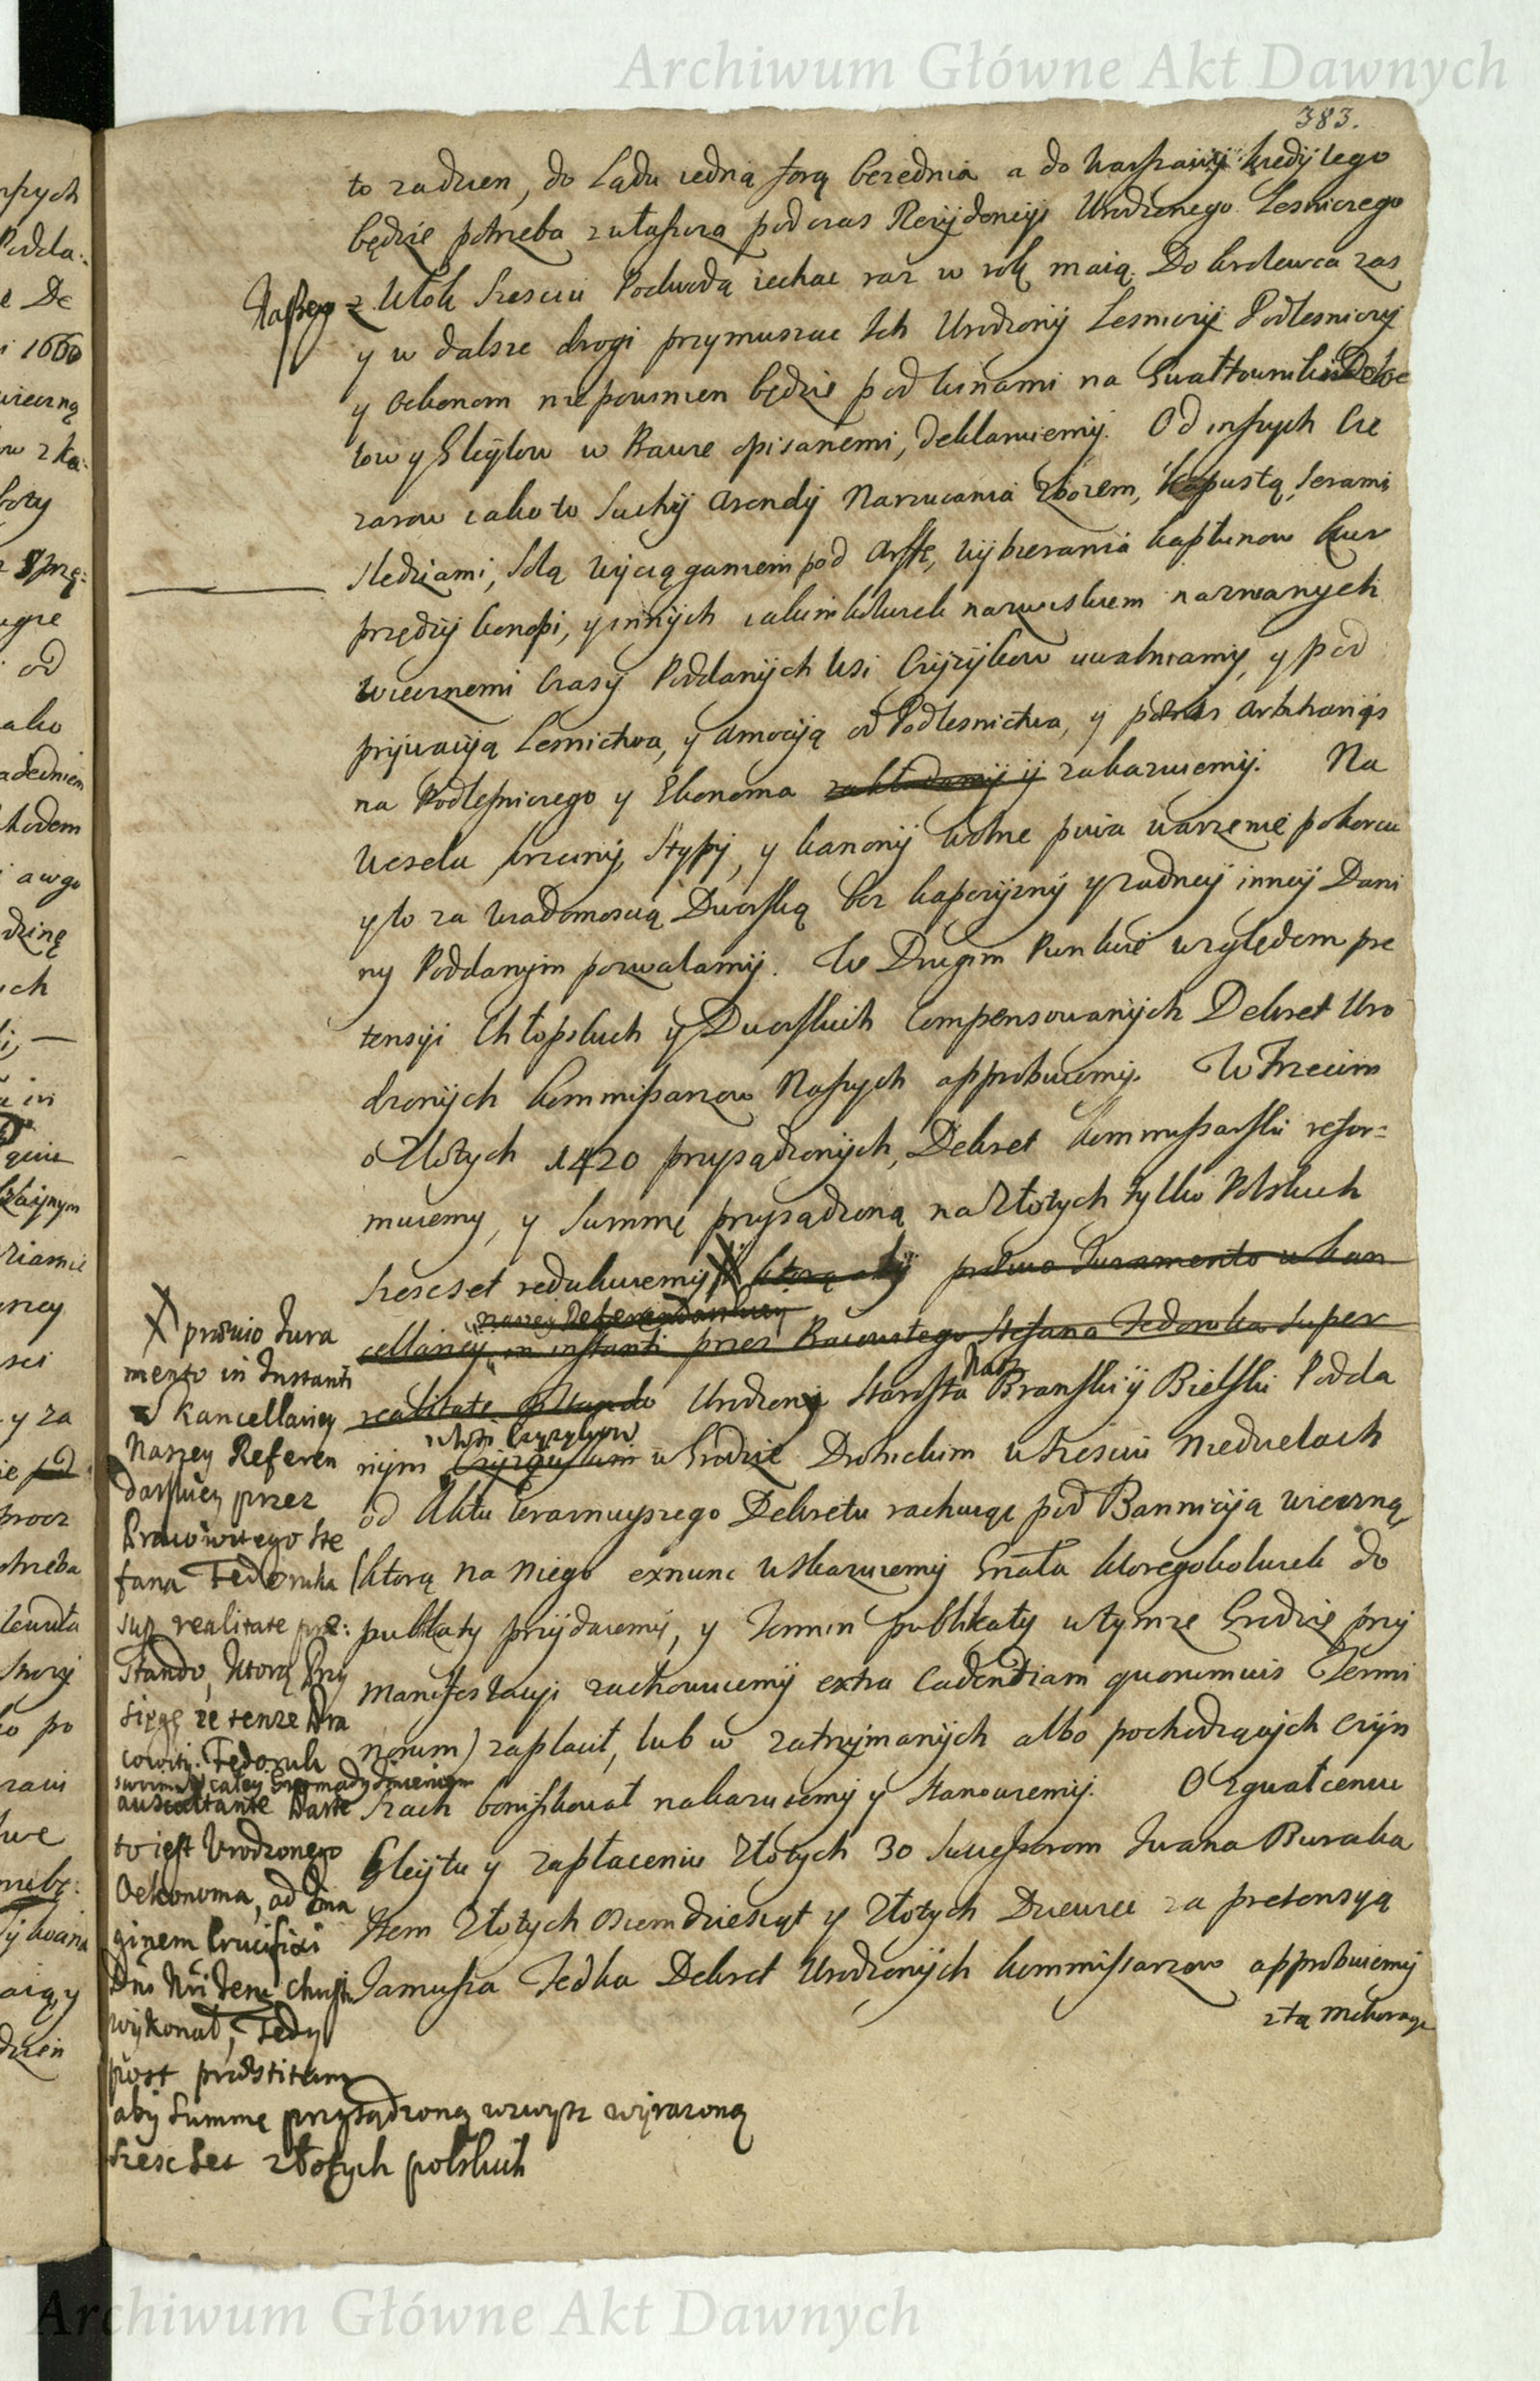 Archiwum Główne Akt Dawnych
383.
to zadzien, do Lądu iedną forą bezednia a do Warszawy kiedy tego
będzie potrzeba zwłaszcza podczas Rezydencyi Urodzonego Lesniczego
Naszego z Włok Szesciu Podwodą iechac raz w rok maią. Do krolewca zas
y w dalsze drogi przymuszac Ich Urodzony Lesniczy Podlesniczy
y Oekonom niepowinien będzie pod winami na Gwałtownikow Dekre
tow y Gleytow w Prawie opisanemi, deklaruiemy. Od inszych Cię
zarow iako to Suchy Arendy Narzucania Zbozem, kapustą, Serami
sledziami, Solą wyciąganiem pod Arszt, wybierania kapłunow kur
przędzy konopi, y innych iakimkolwiek nazwiskiem nazwanych
wiecznemi Czasy Poddanych Wsi Czyzykow uwalniamy, y pod
prywacyą Lesnictwa, y amocyą od Podlesnictwa, y
na Podlesniczego y Ekonoma zakładamy y zakazuiemy. Na
Wesela, krzciny, Stypy, y kanony wolne piwa warzenie po korcu
y to za wiadomoscią Dworską bez kapczyzny y zadney inney Dani
ny Poddanym pozwalamy. W Drugim Punkcie względem pre
tensyi Chłopskich y Dworskich compensowanych Dekret Uro
dzonych kommissarzow Naszych approbuiemy. W Trzecim
o Złotych 1420 przysądzonych, Dekret kommissarski refor=
muiemy, y Summę przysądzoną na Złotych tylko Polskich
Szescset redukuiemy X ktorą aby prævio Juramento w kan
naszey Referendarskiey
cellariey in instanti przez Pracowitego Stefana Fedoruka super
realitate præstando Urodzony Starosta Nasz Branski y Bielski Podda
z wsi Czyzykow
nym w Grodzie Drohickim w Szesciu Niedzielach
od Aktu teraznieyszego Dekretu rachuiąc pod Bannicyą wieczną,
(ktorą na niego exnunc wskazuiemy Generała ktoregokolwiek do
publikaty przydaiemy, y Termin publikaty w tymze Grodzie przy
Manifestacyi zachowuiemy extra Cadentiam quorumvis Termi
norum) zapłacił, lub w zatrzymanych albo pochodzących czyn
szach bonifikował nakazuiemy y Stanowiemy. O zgwałceniu
Gleytu y zapłaceniu Złotych 30 Successorom Iwana Buraka
Item Złotych Osiemdziesiąt y Złotych Dziewięć za pretensyą
Jamusza Fedka Dekret Urodzonych kommissarzow approbuiemy
z tą
X prævio Jura
mento in Instanti
w kancellariey
Naszey Referen
darskiey przez
Pracowitego Ste
fana Fedoruka
sup realitate præ:
stando, ktorą Przy
sięgę ze tenze Pra
cowity Fedoruk
swoim y całey Gromady Imieniem
auscultante Parte
to iest Urodzonego
Oekonoma, ad Ima
ginem Crucifixi
Dni Nri Jesu Christi
wykonał, Tedy
post præstitam
aby Summę przysądzoną wzwysz wyrazoną
Szescset złotych polskich
Archiwum Główne Akt Dawnych